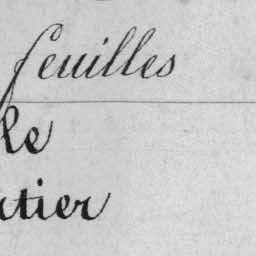 feuilles
le
rtier